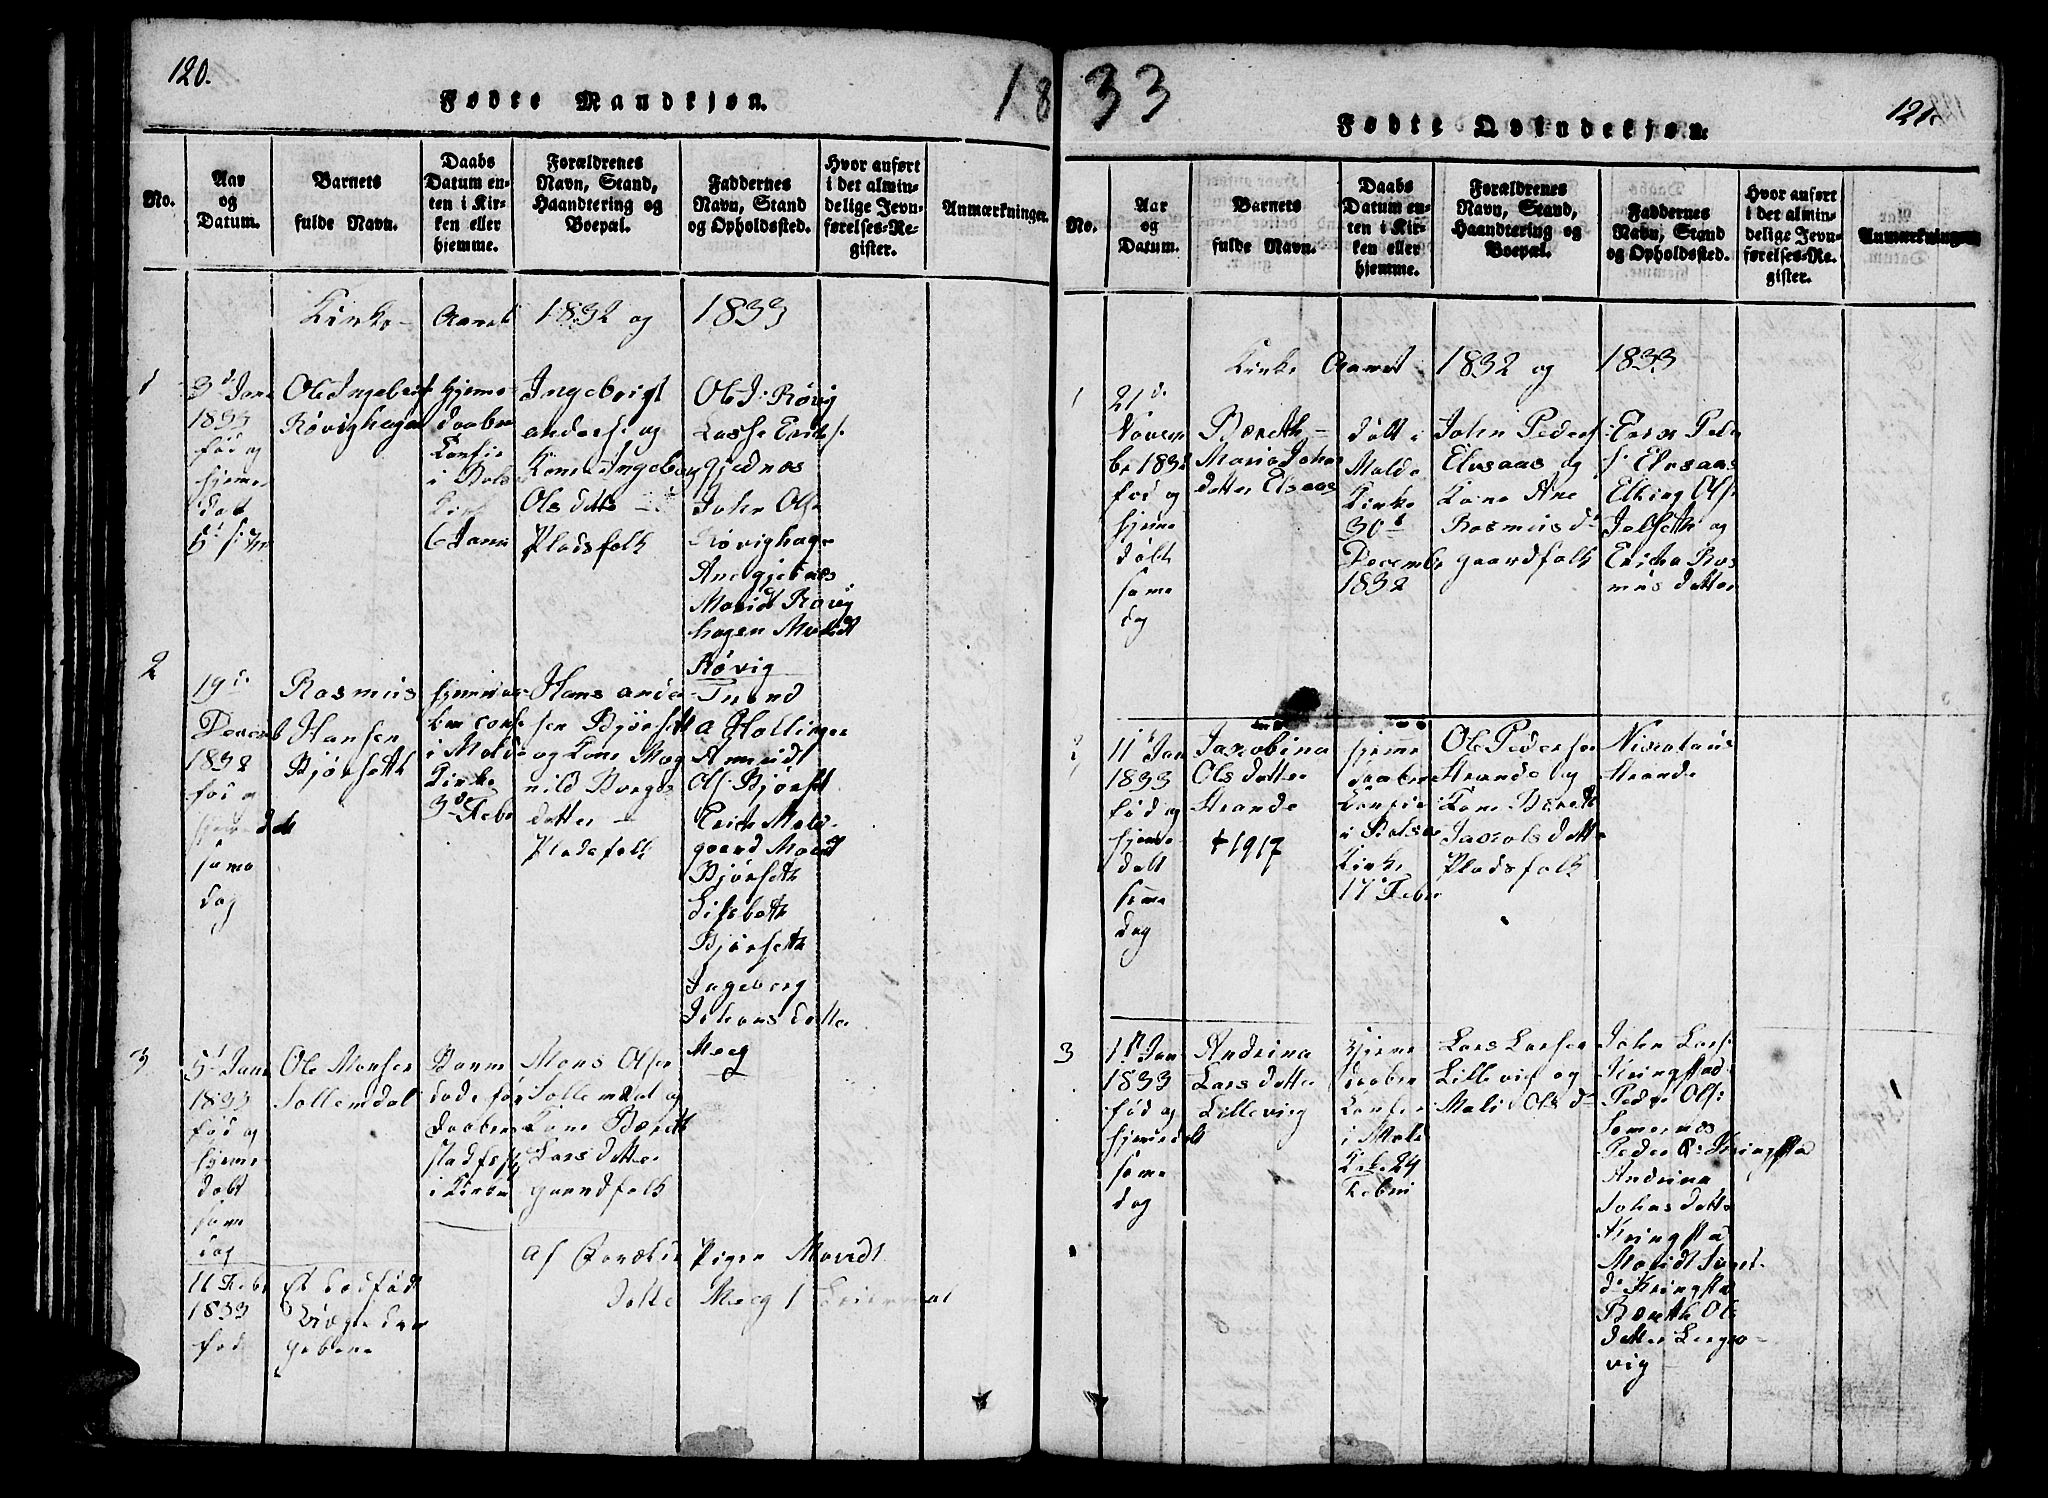 120.
1833
121.
Fødte Mandkjøn.
No.
Aar og Datum.
Barnets fulde Navn.
Daabs Datum enten i Kirken eller hjemme.
Forældrenes Navn, Stand, Haandtering og Boepæl.
Faddernes Navn, Stand og Opholdssted.
Hvor anført i det almindelige Jevnførelses-Register.
Anmærkninger.
Kirke- Aaret 1832 og 1833
1
3d Janu
1833
fød og
hjeme
døbt
Ole Ingebrigts
Røvighagen
hjeme
daaben
Confir
i Bols
Kirk
6 Janu
Ingebrigt
anderse og
Kone Ingeborg
Ols datte
Pladsfolk
Ole J: Røvig
Lasse Erichs:
Gjednæs
John Ols:
Røvighage
Ane gjednæs
Maridt Røvig
hagen Maridt
Røvig
2
19d
Decemb
1832
fød og
hjemedøbt
same
dag
Rasmus
Hansen
Bjørseth
hjemmeda
ben conf
i Molde
Kirke
3d Febr
Hans ander
sen Bjørseth
og Kone Mag
nild Børges
datter
Pladsfolk
Trond
a Hollingen
Amund
Ols: Bjørset
Erich Mold
gaard Maridt
Bjørseth
Lisbeth
Bjørseth
Ingeborg
Johansdatter
Meeg
3
5d Janu
1833
fød og
hjeme
døbt
same
dag
Ole Monsen
Sollemdal
Barne
døde før
Daaben
stadfest
i Kirken
Mons Olsen
Sollemdal og
Kone Bæreth
Lars datter
gaardfolk
11 Febr
1833
fød
Et dødfød
Drægte dren
gebarn
af Qvæke Pigen Maridt
datte Meeg i
Fødte Qvindekjøn.
No.
Aar og Datum.
Barnets fulde Navn.
Daabs Datum enten i Kirken eller hjemme.
Forældrenes Navn, Stand, Haandtering og Boepæl.
Faddernes Navn, Stand og Opholdssted.
Hvor anført i det almindelige Jevnførelses-Register.
Anmærkninger
Kirke Aaret 1832 og 1833
1
21d
Novem
br 1832
fød og
hjeme
døbt
same
dag
Bæreth
Maria Johns
datter Elsaas
døbt i
Molde
Kirke
30d
Decembr
1832
John Peders:
Elvsaas og
Kone Ane
Rasmus dr
gaardfolk
Erich Peder
s: Elvsaas
Elling Ols:
Jelseth og
Ericka Ras
mus datter
2
11d Jan
1833
fød og
hjeme
døbt
same
dag
Jacobina
Ols datter
Strande
† 1917
hjeme
daaben
Confir
i Bolsø
Kirke
17d Febr
Ole Pedersen
Strande og
Kone Bæreth
Jacobs datter
Pladsfolk
Nicolaus
Strande
3
1st Jan
1833
fød og
hjemedøbt
same
dag
Andrina
Lars datter
Lillevig
hjeme
daaben
Confir
i Mold
Kirke 24
Febru
Lars Larsen
Lillevig og
Mali Ols dr
John Lars:
Kringstad
Peder Ols:
Somernæs
Peder O: Kringsta
Andrina
Johns datter
Kringsta
Maridt Iver
dr Kringsta
Bæreth Ole
datter Lerge
vig